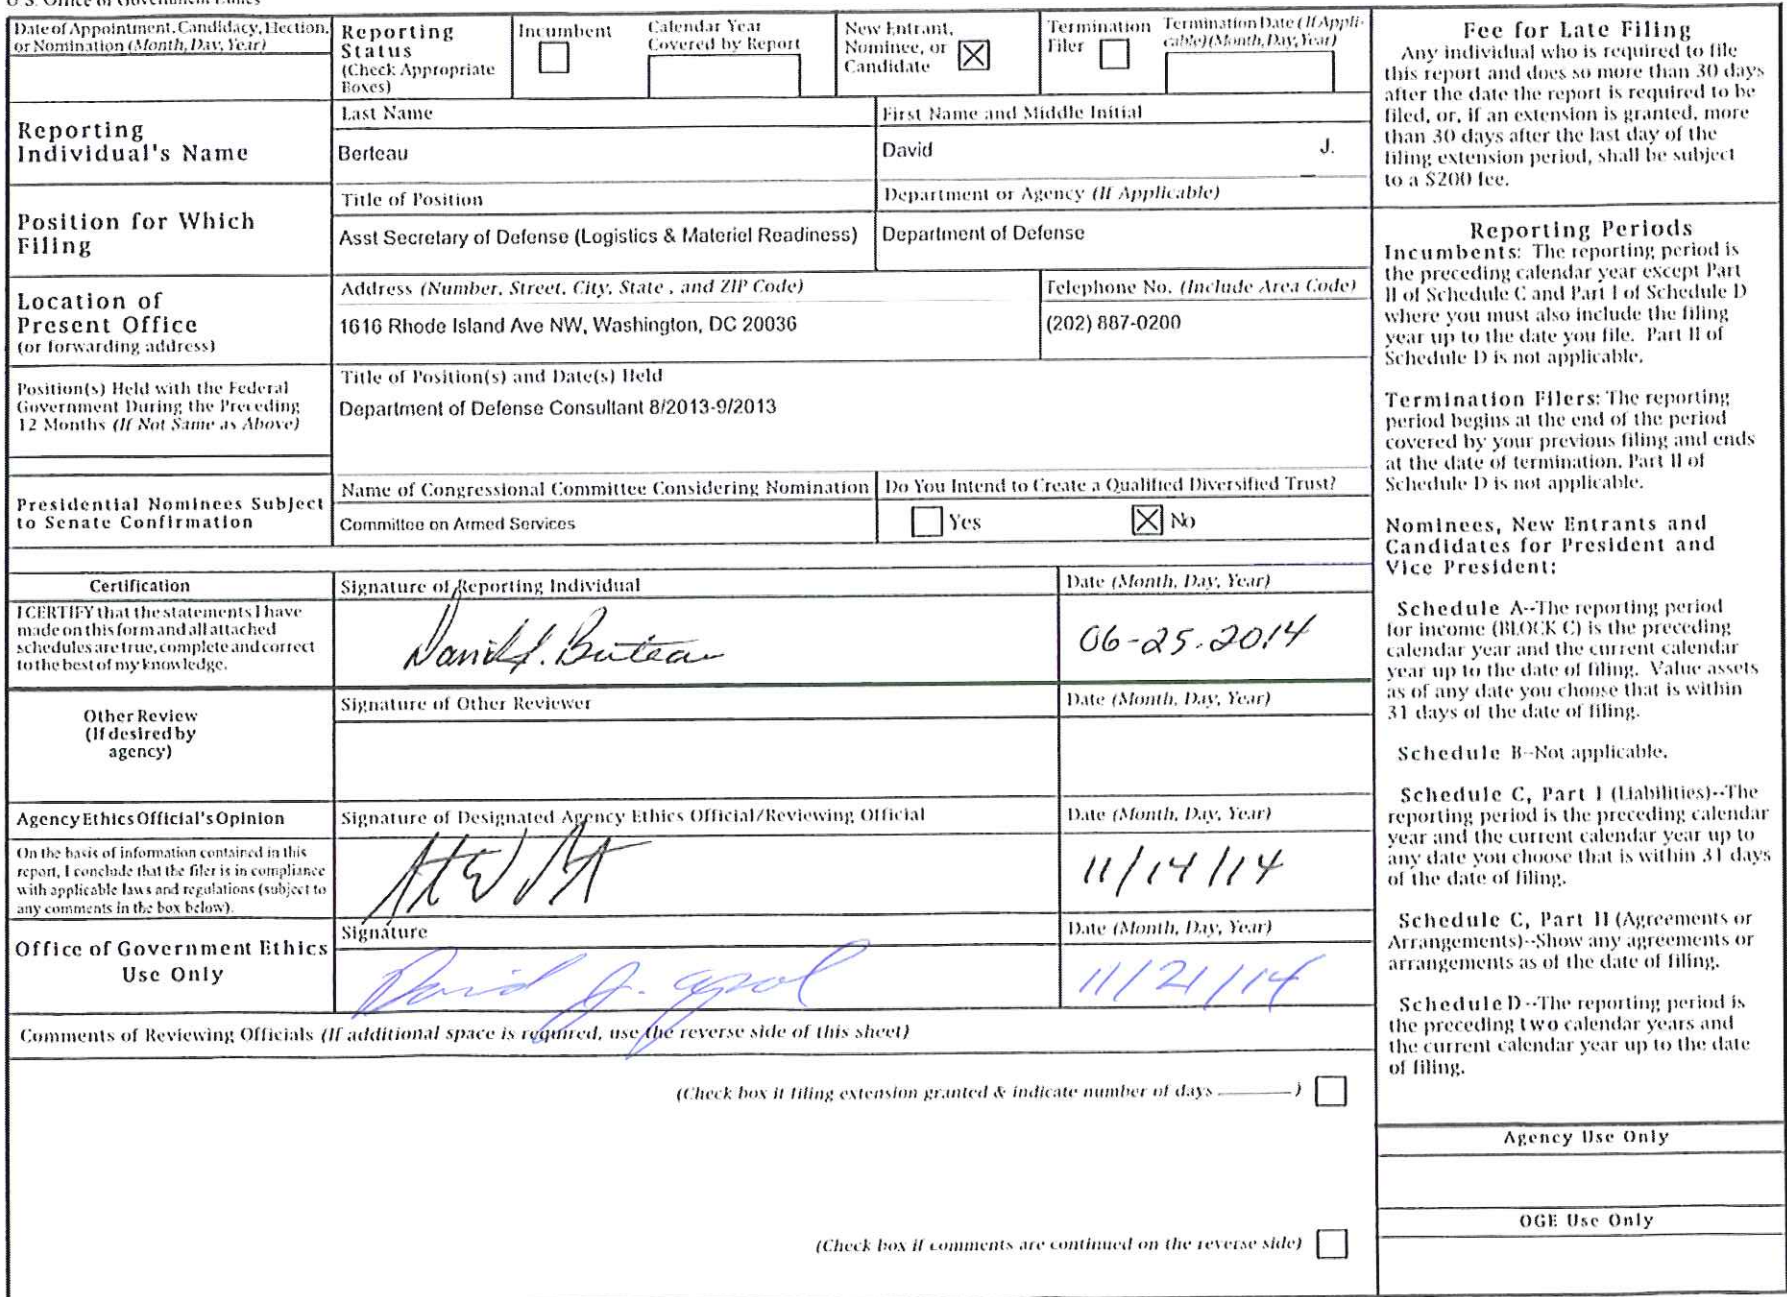 U.S. Office of Government Ethics
Date of Appointment, Candidacy, Election,
or Nomination (Month, Day, Year)
Reporting
Status
(Check Appropriate
Boxes)
Incumbent
Calendar Year
Covered by Report
New Entrant,
Nominee, or
Candidate
Termination
Filer
Termination Date (If Appli-
cable)(Month, Day, Year)
Reporting
Individual's Name
Last Name
Berteau
First Name and Middle Initial
David J.
Position for Which
Filing
Title of Position
Asst Secretary of Defense (Logistics & Materiel Readiness)
Department or Agency (If Applicable)
Department of Defense
Location of
Present Office
(or forwarding address)
Address (Number, Street, City, State , and ZIP Code)
1616 Rhode Island Ave NW, Washington, DC 20036
Telephone No. (Include Area Code)
(202) 887-0200
Position(s) Held with the Federal
Government During the Preceding
12 Months (If Not Same as Above)
Title of Position(s) and Date(s) Held
Department of Defense Consultant 8/2013-9/2013
Presidential Nominees Subject
to Senate Confirmation
Name of Congressional Committee Considering Nomination
Committee on Armed Services
Do You Intend to Create a Qualified Diversified Trust?
Yes
No
Certification
I CERTIFY that the statements I have
made on this form and all attached
schedules are true, complete and correct
to the best of my knowledge.
Signature of Reporting Individual
David J. Berteau
Date (Month, Day, Year)
06-25-2014
Other Review
(If desired by
agency)
Signature of Other Reviewer
Date (Month, Day, Year)
Agency Ethics Official's Opinion
On the basis of information contained in this
report, I conclude that the filer is in compliance
with applicable laws and regulations (subject to
any comments in the box below).
Signature of Designated Agency Ethics Official/Reviewing Official
Date (Month, Day, Year)
11/14/14
Office of Government Ethics
Use Only
Signature
David J. Apol
Date (Month, Day, Year)
11/21/14
Comments of Reviewing Officials (If additional space is required, use the reverse side of this sheet)
(Check box if filing extension granted & indicate number of days ______ )
(Check box if comments are continued on the reverse side)
Fee for Late Filing
Any individual who is required to file
this report and does so more than 30 days
after the date the report is required to be
filed, or, if an extension is granted, more
than 30 days after the last day of the
filing extension period, shall be subject
to a $200 fee.
Reporting Periods
Incumbents: The reporting period is
the preceding calendar year except Part
II of Schedule C and Part I of Schedule D
where you must also include the filing
year up to the date you file. Part II of
Schedule D is not applicable.
Termination Filers: The reporting
period begins at the end of the period
covered by your previous filing and ends
at the date of termination. Part II of
Schedule D is not applicable.
Nominees, New Entrants and
Candidates for President and
Vice President:
Schedule A--The reporting period
for income (BLOCK C) is the preceding
calendar year and the current calendar
year up to the date of filing. Value assets
as of any date you choose that is within
31 days of the date of filing.
Schedule B--Not applicable.
Schedule C, Part I (Liabilities)--The
reporting period is the preceding calendar
year and the current calendar year up to
any date you choose that is within 31 days
of the date of filing.
Schedule C, Part II (Agreements or
Arrangements)--Show any agreements or
arrangements as of the date of filing.
Schedule D--The reporting period is
the preceding two calendar years and
the current calendar year up to the date
of filing.
Agency Use Only
OGE Use Only